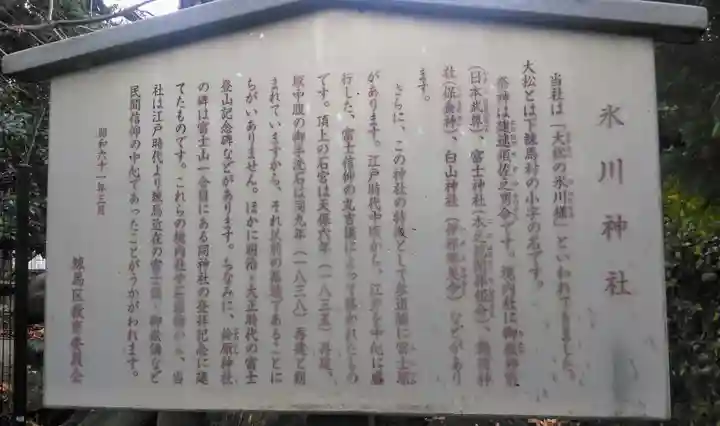 氷川神社
当社は「大松の氷川様」といわれてきました。
大松とは下練馬村の小字の名です。
祭神は建速須佐之男命です。境内社は御嶽神社
(日本武尊)、富士神社(木之花開耶姫命)、稲荷神
社(保食神)、白山神社(伊弉冊尊命)などがあり
ます。
さらに、この神社の特徴として参道脇に富士塚
があります。江戸時代中頃から、江戸を中心に盛
行した、富士信仰の丸吉講によって築かれたもの
です。頂上の石宮は天保六年(一八三五)再建、
塚中腹の御手洗石は同九年(一八三八)再建と刻
まれていますから、それ以前の築造であることに
ちがいありません。ほかに明治・大正時代の富士
登山記念碑などがあります。ちなみに、鈴原神社
の碑は富士山一合目にある同神社の登拝記念に建
てたものです。これらの境内社や石造物から、当
社は江戸時代より練馬近在の富士講・御嶽講など
民間信仰の中心であったことがうかがわれます。
昭和六十一年三月
練馬区教育委員会